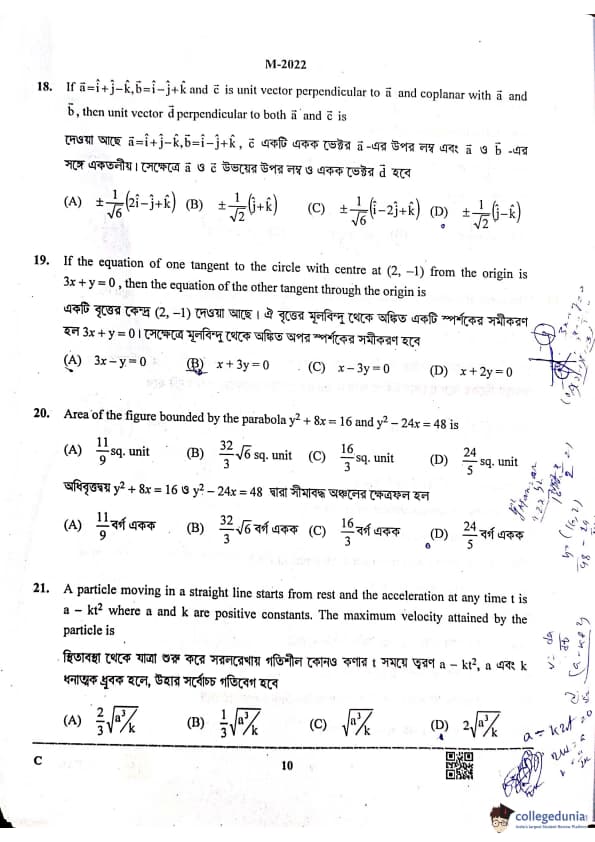 M-2022
18. If a⃗=î+ĵ−k̂,b⃗=î−ĵ+k̂ and c⃗ is unit vector perpendicular to a⃗ and coplanar with a⃗ and
b⃗, then unit vector d⃗ perpendicular to both a⃗ and c⃗ is
দেওয়া আছে a⃗=î+ĵ−k̂,b⃗=î−ĵ+k̂ , c⃗ একটি একক ভেক্টর a⃗-এর উপর লম্ব এবং a⃗ ও b⃗ -এর
সঙ্গে একতলীয়। সেক্ষেত্রে a⃗ ও c⃗ উভয়ের উপর লম্ব ও একক ভেক্টর d⃗ হবে
(A) ±1/√6(2î−ĵ+k̂) (B) ±1/√2(ĵ+k̂) (C) ±1/√6(î−2ĵ+k̂) (D) ±1/√2(ĵ−k̂)
19. If the equation of one tangent to the circle with centre at (2, −1) from the origin is
3x + y = 0 , then the equation of the other tangent through the origin is
একটি বৃত্তের কেন্দ্র (2, −1) দেওয়া আছে। ঐ বৃত্তের মূলবিন্দু থেকে অঙ্কিত একটি স্পর্শকের সমীকরণ
হল 3x + y = 0। সেক্ষেত্রে মূলবিন্দু থেকে অঙ্কিত অপর স্পর্শকের সমীকরণ হবে
(A) 3x − y = 0 (B) x + 3y = 0 (C) x − 3y = 0 (D) x + 2y = 0
20. Area of the figure bounded by the parabola y² + 8x = 16 and y² − 24x = 48 is
(A) 11/9 sq. unit (B) 32/3 √6 sq. unit (C) 16/3 sq. unit (D) 24/5 sq. unit
অধিবৃত্তদ্বয় y² + 8x = 16 ও y² − 24x = 48 দ্বারা সীমাবদ্ধ অঞ্চলের ক্ষেত্রফল হল
(A) 11/9 বর্গ একক (B) 32/3 √6 বর্গ একক (C) 16/3 বর্গ একক (D) 24/5 বর্গ একক
21. A particle moving in a straight line starts from rest and the acceleration at any time t is
a − kt² where a and k are positive constants. The maximum velocity attained by the
particle is
স্থিতাবস্থা থেকে যাত্রা শুরু করে সরলরেখায় গতিশীল কোনও কণার t সময়ে ত্বরণ a − kt², a এবং k
ধনাত্মক ধ্রুবক হলে, উহার সর্বোচ্চ গতিবেগ হবে
(A) 2/3 √(a³/k) (B) 1/3 √(a³/k) (C) √(a³/k) (D) 2√(a³/k)
C 10
collegedunia
India's largest Student Review Platform